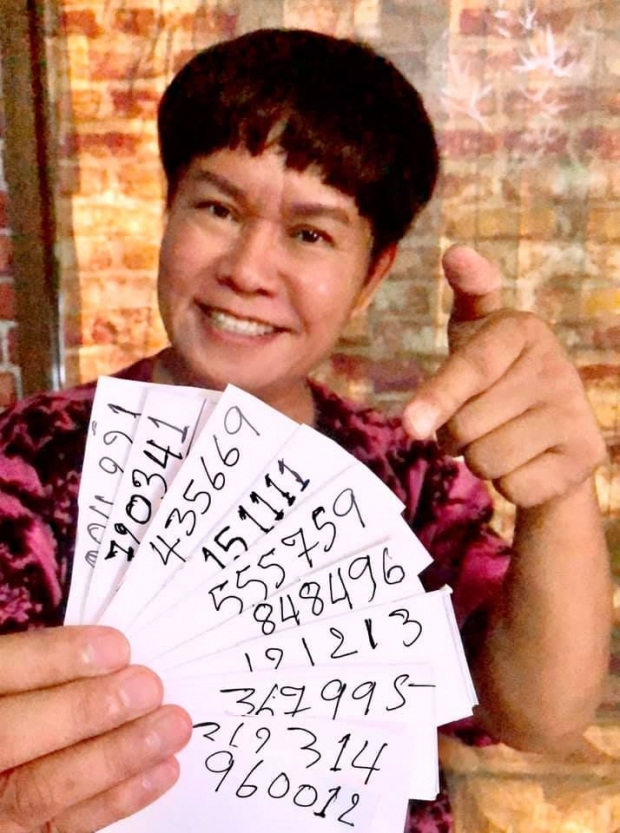 790341
435669
151111
555759
848496
191213
367995
314
960012